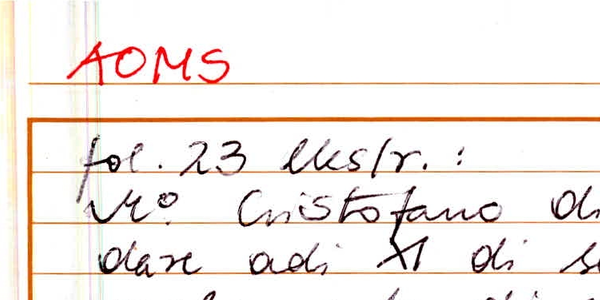 AOMS
fol. 23 lks/r. :
Mº Cristofano di
dare adi XI di se